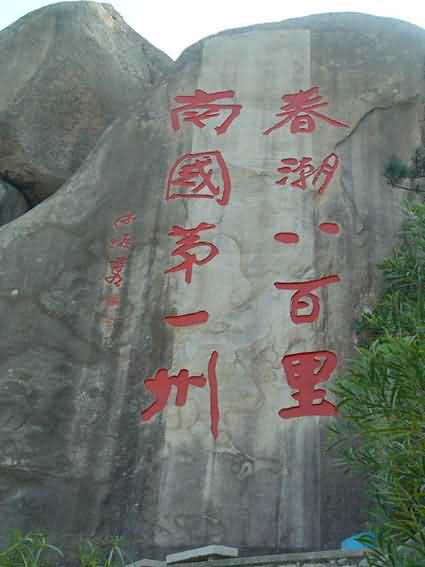 春潮八百里
南國第一州